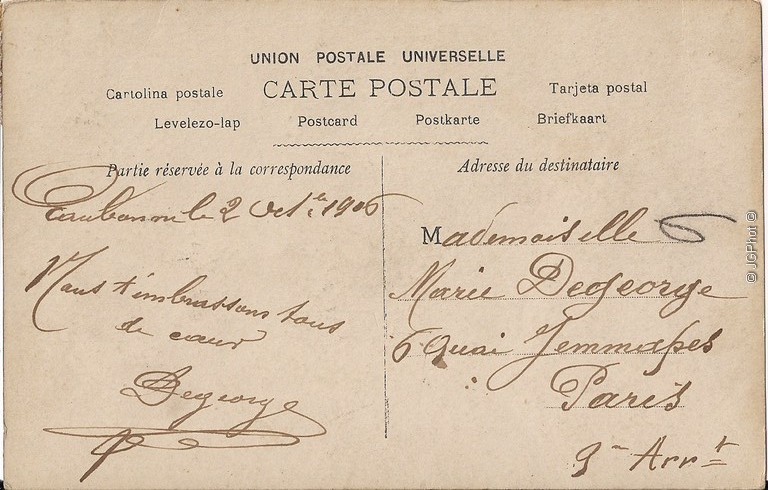 UNION POSTALE UNIVERSELLE
CARTE POSTALE
Cartolina postale
Tarjeta postal
Levelezo-lap
Postcard
Postkarte
Briefkaart
Partie réservée à la correspondance
le 2 Oct.e 1906
Nous t'embrassons tous
de cœur
Degeorge
Adresse du destinataire
Mademoiselle
Marie Degeorge
6 Quai Jemmapes
Paris
Arrt
© JGPhot ©